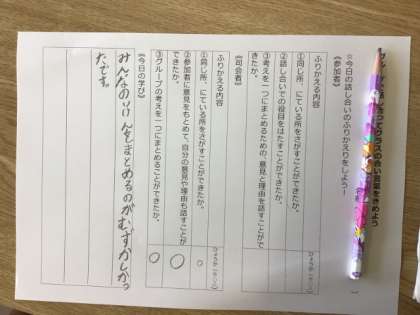 クラスの合い言葉をきめよう
☆今日の話し合いのふりかえりをしよう！
《参加者》
ふりかえる内容
①同じ所、にている所をさがすことができたか。
②話し合いでの役目をはたすことができたか。
③考えを一つにまとめるための、意見と理由を話すことがで
きたか。
《司会者》
ふりかえる内容
①同じ所、にている所をさがすことができたか。
○
②参加者に意見をもとめて、自分の意見や理由も話すことが
できたか。
○
③グループの考えを一つにまとめることができたか。
○
《今日の学び》
みんなのいけんをまとめるのがむずかしかっ
たです。